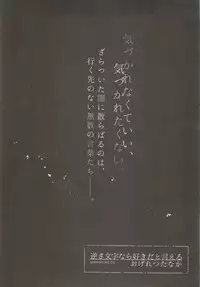 気づかれなくていい、
気づかれたくない。
ざらついた闇に散らばるのは、
行く先のない無数の言葉たち――
逆さ文字なら好きだと言える
おげれつたなか